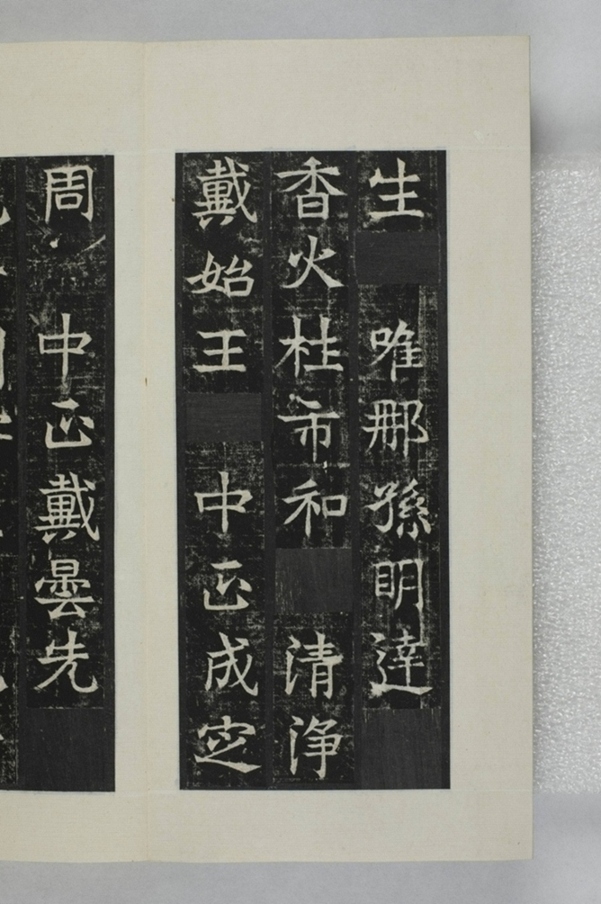 生 唯那孫明達
香火杜市和 清淨
戴始王 中正成定
周 中正戴曇先